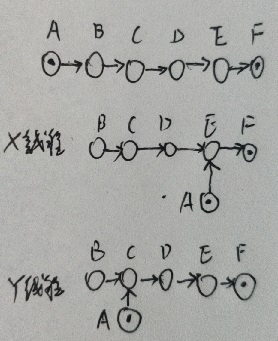 A B C D E F
X线程 B C D E F
A
Y线程 B C D E F
A